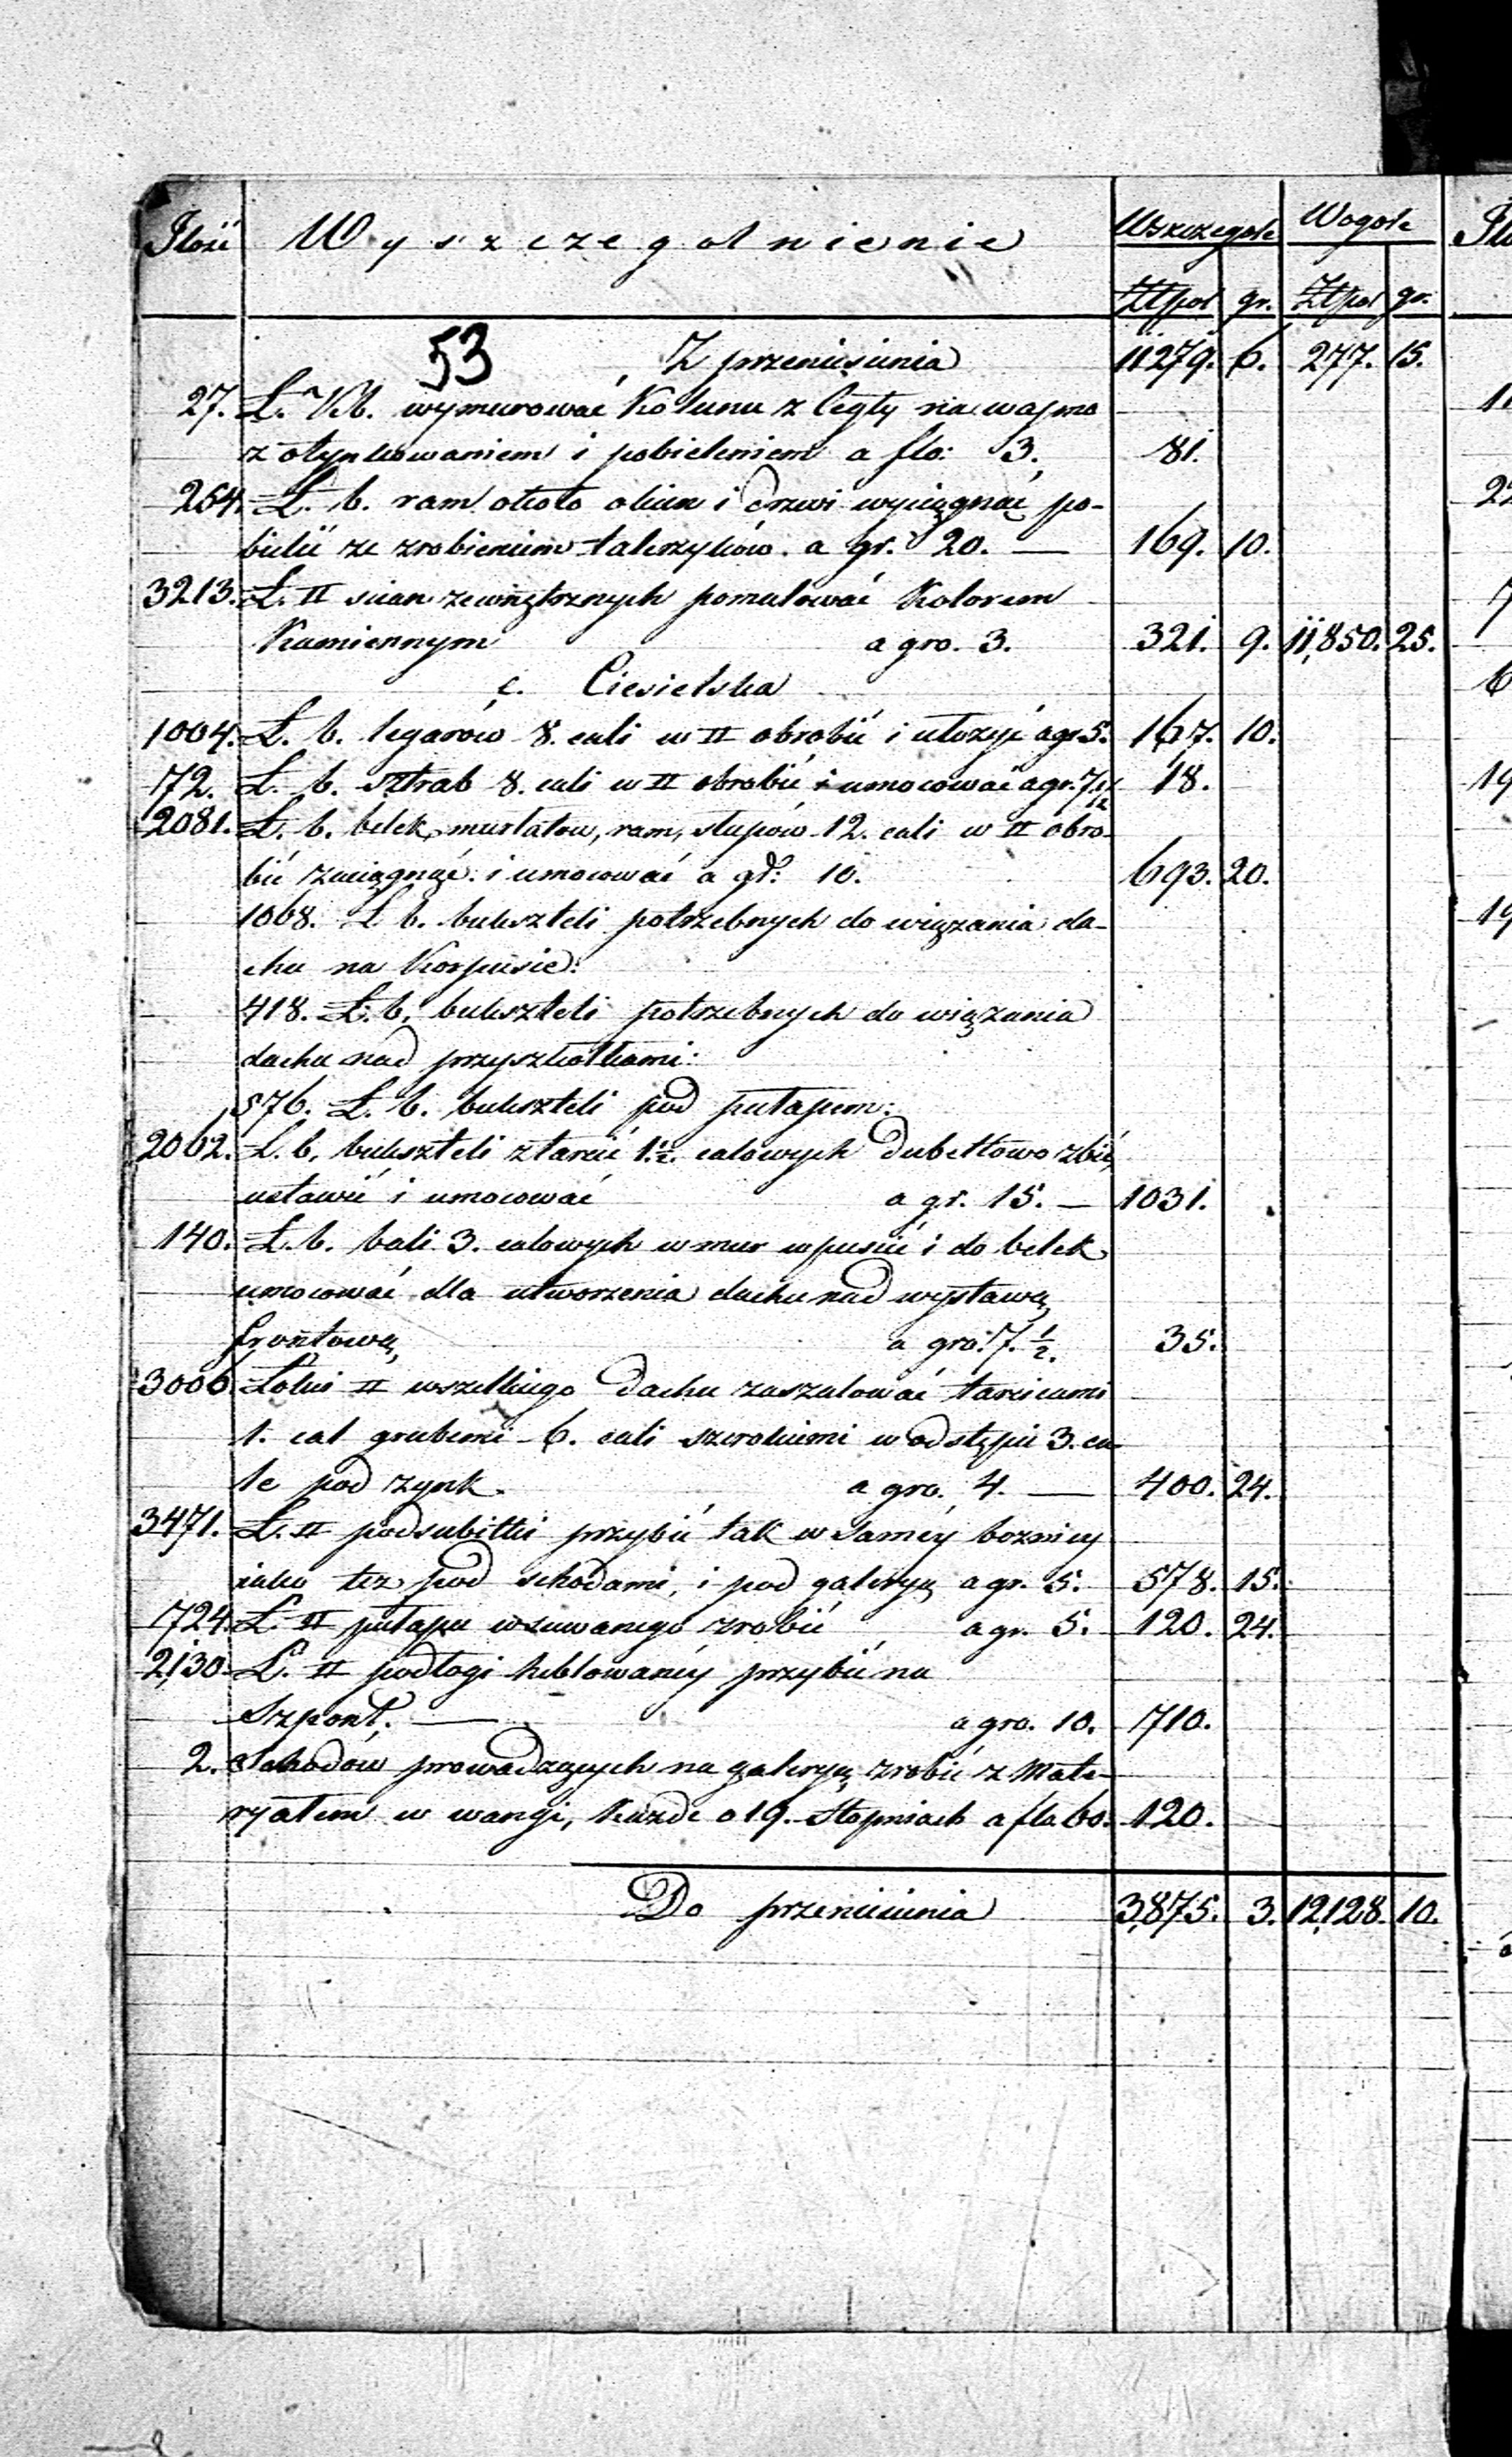 Ilość Wyszczegolnienie Wszczegole Wogole
Złpol gr. Złpol gr.
53 Z przeniesienia 11279. 6. 277. 15.
27. Ł. Kb. wymurować Kolunn z Cegły na wapno
z otynkowaniem i pobieleniem a flo: 3. 81.
254. Ł. b. ram około okien i drzwi wyciągnąć po-
bielić ze zrobieniem talerzyków a gr. 20. — 169. 10.
3213. Ł. □ scian zewnętrznych pomalować Kolorem
Kamiennym a gro. 3. 321. 9. 11,850. 25.
c. Ciesielska
1004. Ł. b. legarow 8. cali w □ obrobić i ułożyć a gr. 5. 167. 10.
172. Ł. b. sztrab 8. cali w □ obrobić i umocować a gr. 7 1/2 18.
2081. Ł. b. belek, murłatow, ram, słupów 12. cali w □ obro-
bić zaciągnąć i umocować a gr: 10. 693. 20.
1068. Ł. b. bukszteli potrzebnych do wiązania da-
chu na Korpusie:
418. Ł. b. bukszteli potrzebnych do wiązania
dachu nad przyszkołkami:
576. Ł. b. bukszteli pod pułapem:
2062. Ł. b. bukszteli z tarcić 1 1/2 calowych Dubeltowo zbić,
ustawić i umocować a gr. 15. — 1031.
140. Ł. b. bali 3. calowych w mur wpuścić i do belek
umocować dla utworzenia dachu nad wystawą
frontową, a gro: 7. 1/2. 35.
3006 Łokci □ wszelkiego Dachu zaszalować tarcicami
1. cal grubemi 6. cali szerokiemi w odstępie 3. ca-
le pod zynk. a gro. 4. — 400. 24.
3471. Ł. □ podsubitki przybić tak w Saméy boznicy
iako też pod schodami, i pod galeryą a gr. 5. 578. 15.
724. Ł. □ pułapu wsuwanego zrobić a gr. 5. 120. 24.
2,130. Ł. □ podłogi heblowanéy przybić na
Szpont. — a gro. 10. 710.
2. Schodów prowadzących na galeryą zrobić z Mate-
ryałem w wangi, Każde o 19. Stopniach a flo 60. 120.
Do przeniesienia 3,875. 3. 12,128. 10.